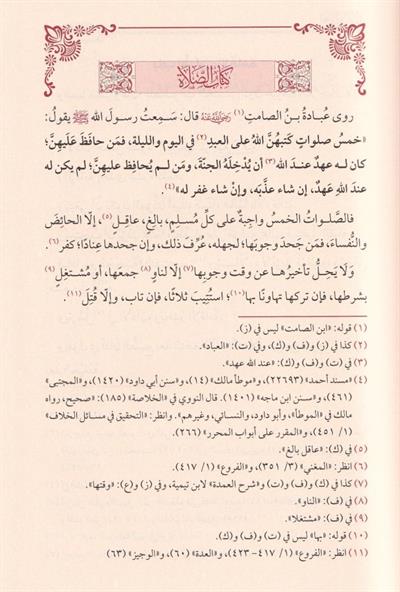 كتاب الصلاة
روى عُبادةُ بنُ الصامتِ(١) رَضِيَ اللهُ عَنْهُ قال: سَمِعتُ رسولَ الله ﷺ يقولُ:
«خمسُ صلواتٍ كَتبهُنَّ اللهُ على العبدِ(٢) في اليوم والليلة، فمَن حافظَ عَلَيهنَّ؛
كان لـه عهدٌ عنـد الله(٣) أن يُدْخِلَهُ الجنَّةَ، ومَن لـم يُحافِظ عليهنَّ؛ لم يكن له
عندَ اللهِ عَهدٌ، إن شاء عذَّبَه، وإنْ شاءَ غفر له»(٤).
فالصَّلـواتُ الخمسُ واجبةٌ على كلِّ مُسـلِمٍ، بالِغٍ، عاقِـلٍ(٥)، إلّا الحائِضَ
والنُّفساءَ، فمَن جَحدَ وجوبَها؛ لجهلِه، عُرِّفَ ذلك، وإن جحدها عِنادًا؛ كفر(٦).
وَلَا يَحِلُّ تأخيرُهـا عن وقت وجوبِها(٧) إلّا لناوٍ(٨) جمعَها، أو مُشـتغِلٍ(٩)
بشرطها، فإن تركها تهاونًا بها(١٠)؛ استُتِيبَ ثلاثًا، فإن تاب، وإلّا قُتِلَ(١١).
(١) قوله: «ابن الصامت» ليس في (ز).
(٢) كذا في (ز) و(ف) و(ك)، وفي (ت): «العباد».
(٣) في (ت) و(ف) و(ك): «عند الله عهد».
(٤) «مسند أحمد» (٢٢٦٩٣)، و«موطأ مالك» (١٤)، و«سنن أبي داود» (١٤٢٠)، و«المجتبى»
(٤٦١)، و«سنن ابن ماجه» (١٤٠١). قال النووي في «الخلاصة» (١٨٥): «صحيح، رواه
مالك في «الموطأ»، وأبو داود، والنسائي، وغيرهم». وانظر: «التحقيق في مسائل الخلاف»
(١/ ٤٥١)، و«المقرر على أبواب المحرر» (٢٦٦).
(٥) في (ك): «عاقل بالغ».
(٦) انظر: «المغني» (٣/ ٣٥١)، و«الفروع» (١/ ٤١٧).
(٧) كذا في (ك) و(ف) و(ت) و«شرح العمدة» لابن تيمية، وفي (ز) و(ع): «وقتها».
(٨) في (ف): «الناو».
(٩) في (ف): «مشتغلا».
(١٠) قوله: «بها» ليس في (ت) و(ف) و(ك).
(١١) انظر: «الفروع» (١/ ٤١٧-٤٢٣)، و«العدة» (٦٠)، و«الوجيز» (٦٣)